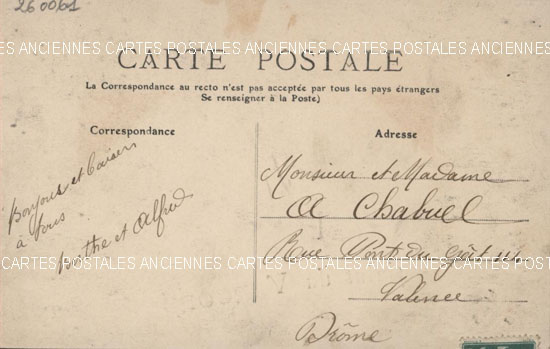 260061
CARTES POSTALES ANCIENNES CARTES POSTALES ANCIENNES CARTES POSTALES
CARTE POSTALE
La Correspondance au recto n'est pas acceptée par tous les pays étrangers
Se renseigner à la Poste)
Correspondance
Bonjour et baisers
à tous
Berthe et Alfred
Adresse
Monsieur et Madame
A Chabuel
Rue Pont du
Valence
Drôme
CARTES POSTALES ANCIENNES CARTES POSTALES ANCIENNES CARTES POSTALES